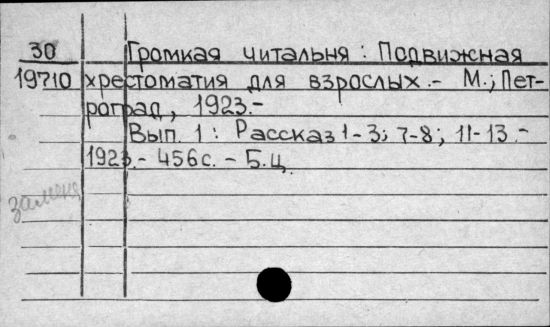 30 Громкая читальня: Подвижная
19710 хрестоматия для взрослых.- М.; Пет-
роград, 1923.-
Вып. 1: Рассказ 1-3; 7-8; 11-13.-
1923.- 456 с. - Б.ц.
замена